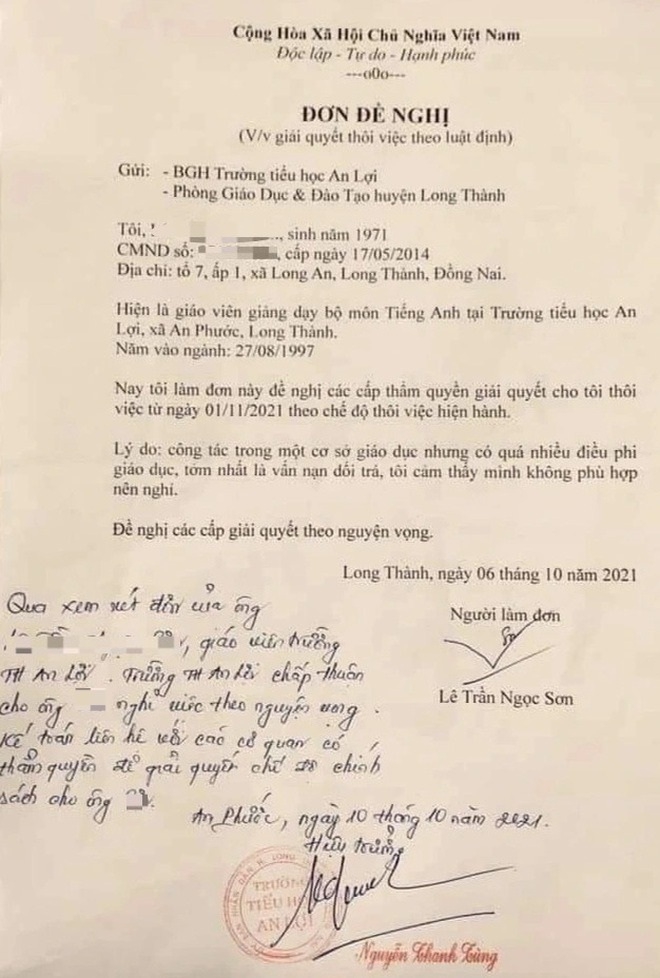 Cộng Hòa Xã Hội Chủ Nghĩa Việt Nam
Độc lập - Tự do - Hạnh phúc
---o0o---
ĐƠN ĐỀ NGHỊ
(V/v giải quyết thôi việc theo luật định)
Gửi: - BGH Trường tiểu học An Lợi
- Phòng Giáo Dục & Đào Tạo huyện Long Thành
Tôi, , sinh năm 1971
CMND số: , cấp ngày 17/05/2014
Địa chỉ: tổ 7, ấp 1, xã Long An, Long Thành, Đồng Nai.
Hiện là giáo viên giảng dạy bộ môn Tiếng Anh tại Trường tiểu học An
Lợi, xã An Phước, Long Thành.
Năm vào ngành: 27/08/1997
Nay tôi làm đơn này đề nghị các cấp thẩm quyền giải quyết cho tôi thôi
việc từ ngày 01/11/2021 theo chế độ thôi việc hiện hành.
Lý do: công tác trong một cơ sở giáo dục nhưng có quá nhiều điều phi
giáo dục, tởm nhất là vấn nạn dối trá, tôi cảm thấy mình không phù hợp
nên nghỉ.
Đề nghị các cấp giải quyết theo nguyện vọng.
Long Thành, ngày 06 tháng 10 năm 2021
Người làm đơn
Lê Trần Ngọc Sơn
Qua xem xét đơn của ông
, giáo viên trường
TH An Lợi. Trường TH An Lợi chấp thuận
cho ông nghỉ việc theo nguyện vọng.
Kế toán liên hệ với các cơ quan có
thẩm quyền để giải quyết chế độ chính
sách cho ông
An Phước, ngày 10 tháng 10 năm 2021.
Hiệu trưởng
TRƯỜNG
TIỂU HỌC
AN LỢI
Nguyễn Thanh Tùng